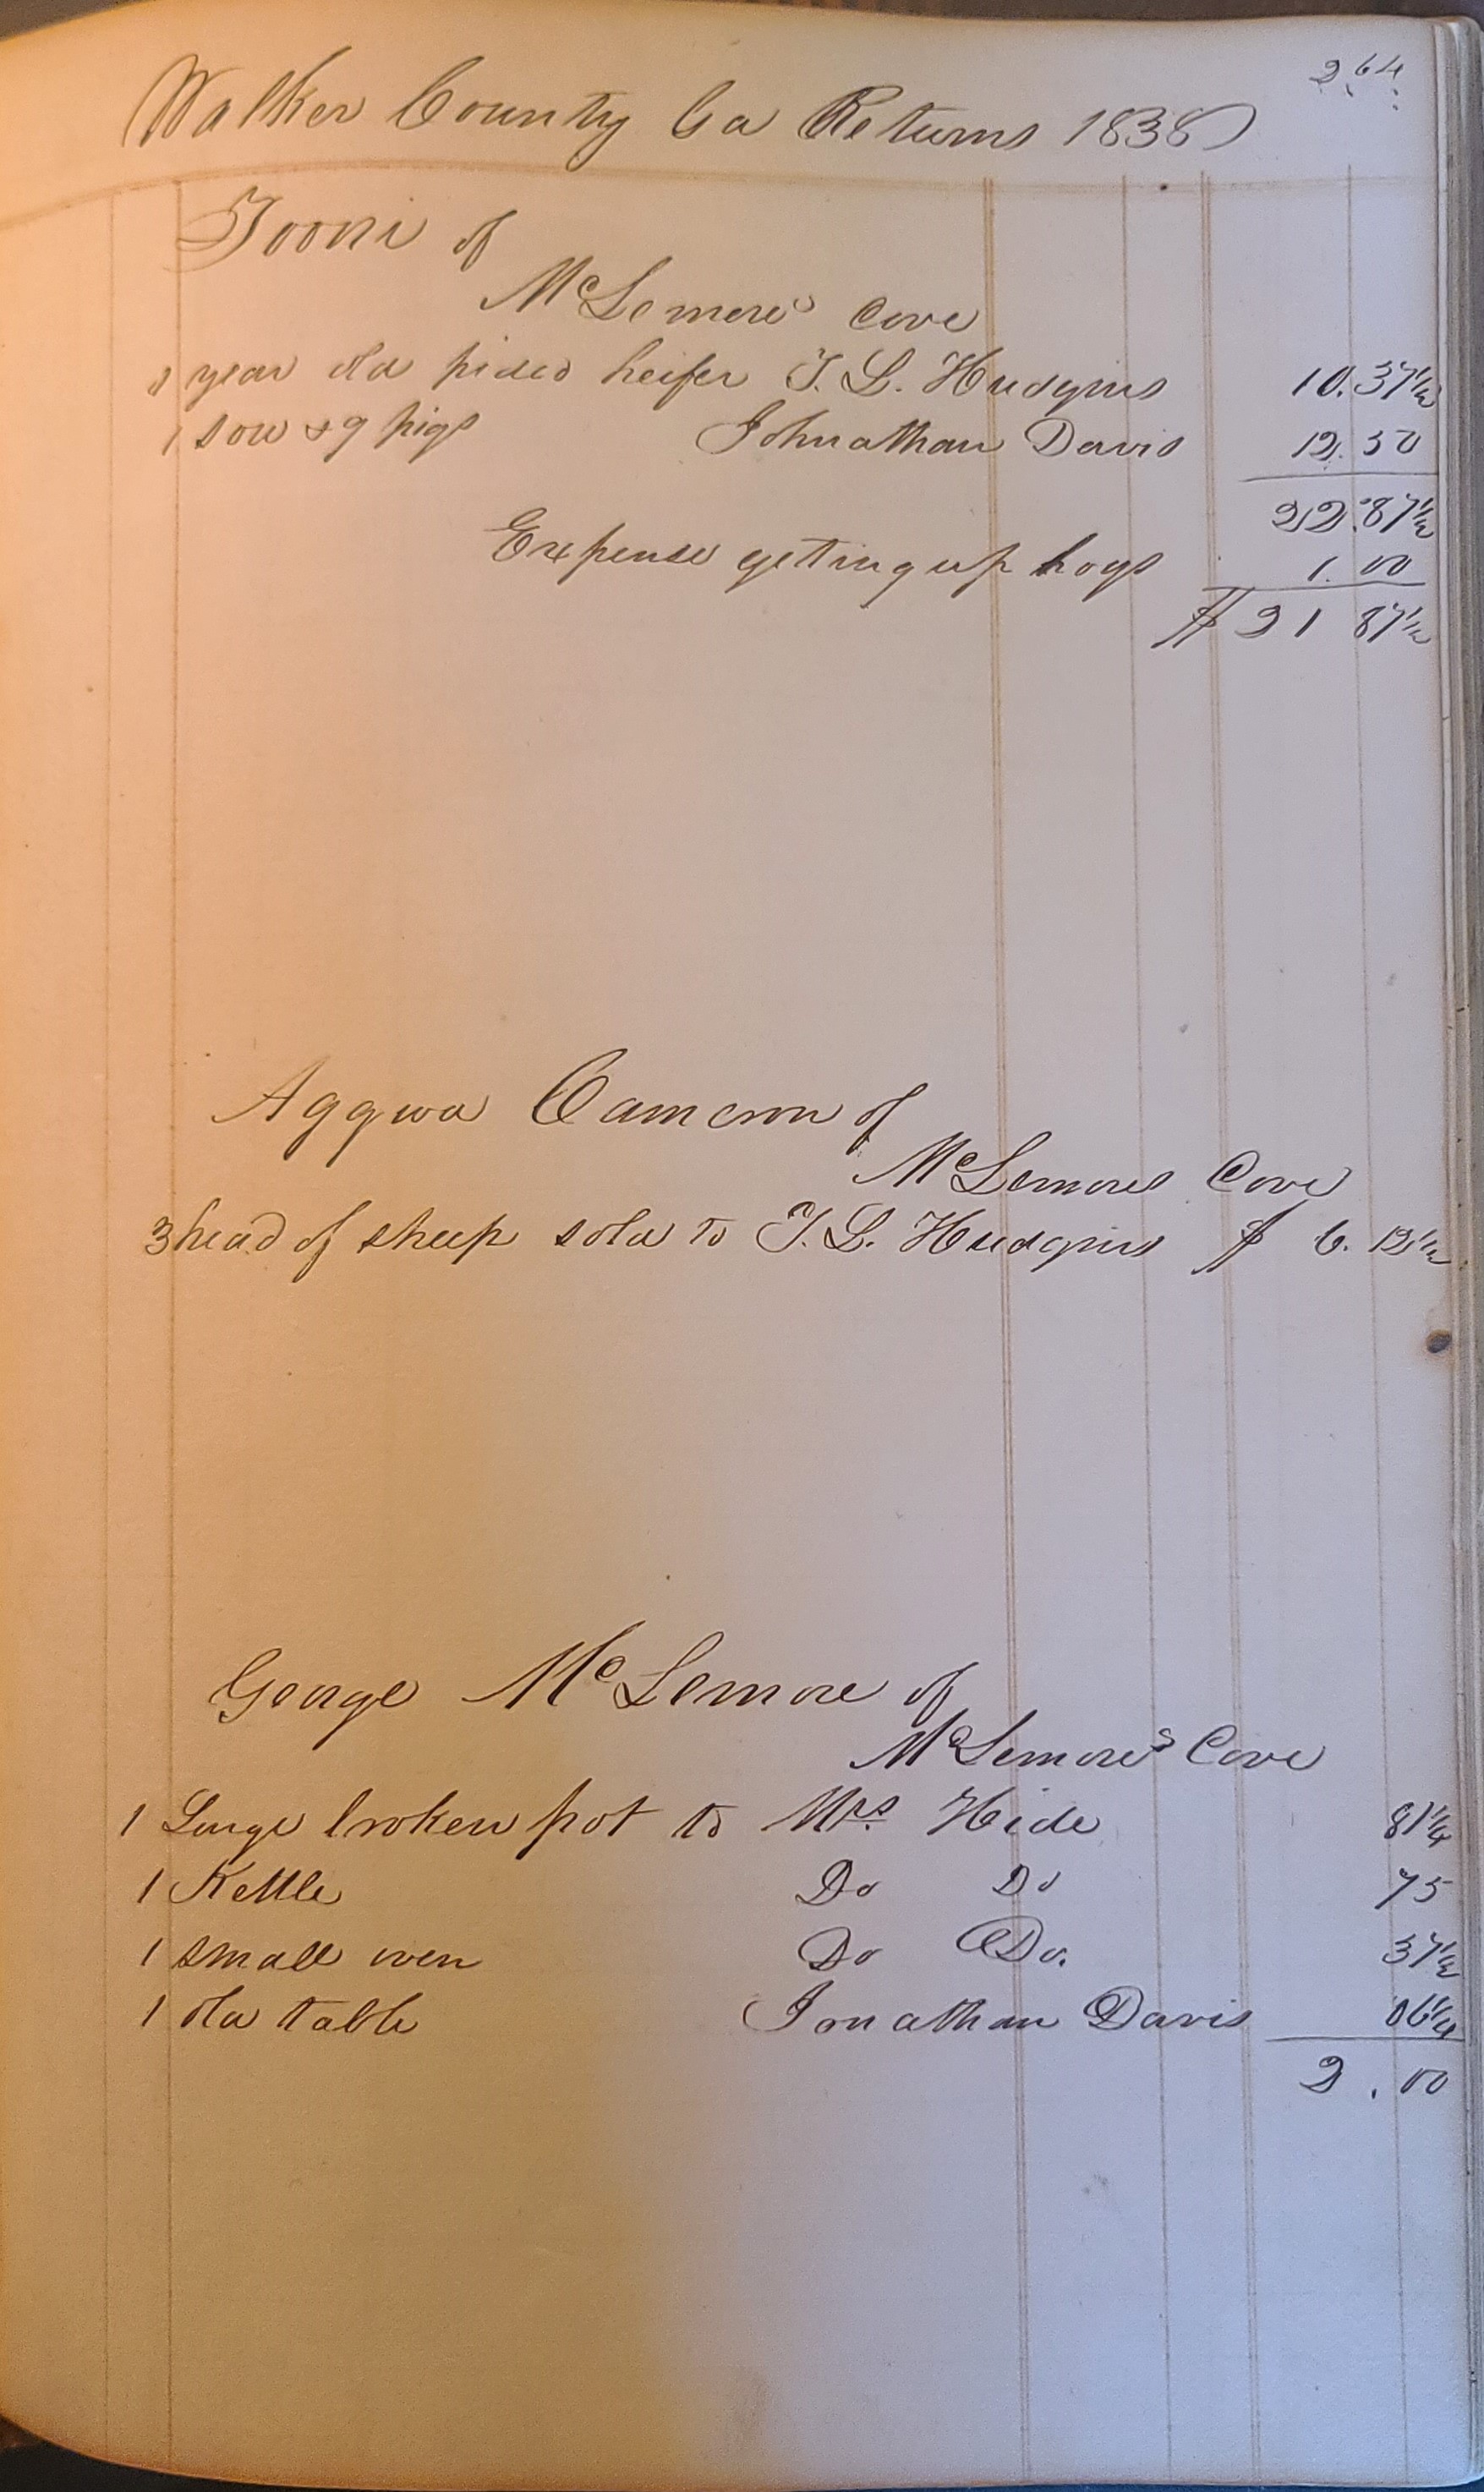 264
Walker County Ga Returns 1838
Tooni of
McLemore's Cove
1 year old pided heifer T. L. Hudgins 10.37 1/2
1 sow & 9 pigs Johnathan Davis 12.50
22.87 1/2
Expense geting up hogs 1.00
$21 87 1/2
Aggwa Cameron of
McLemores Cove
3 head of sheep sold to T. L. Hudgins $ 6. 12 1/2
George McLemore of
McLemore's Cove
1 Large broken pot to Mrs. Hide 81 1/4
1 Kettle Do Do 75
1 small oven Do Do. 37 1/2
1 old table Jonathan Davis 06 1/4
2.00